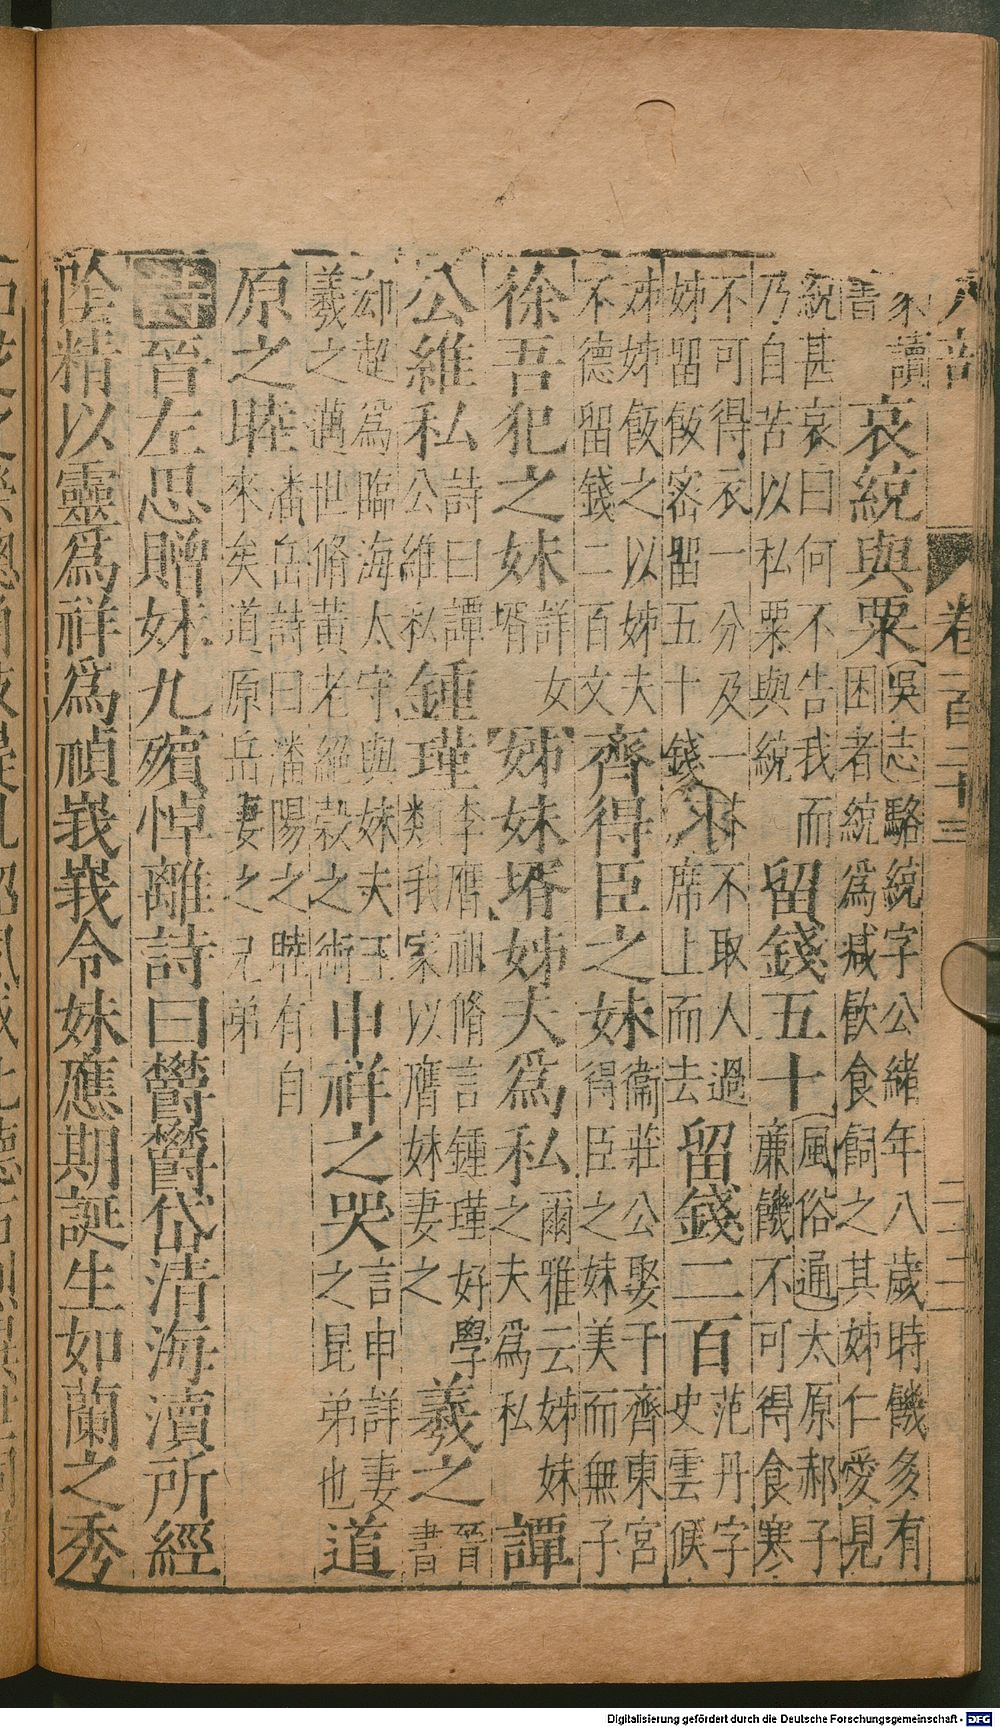 人部
卷
家讀
書
哀統與粟
吳志駱統字公緒年八歲時饑多有
困者統爲减飲食飼之其姊仁愛見
統甚哀曰何不告我而
乃自苦以私粟與統
留錢五十
風俗通太原郝子
廉饑不可得食寒
不可得衣一分及一不取人過
姊留飯密留五十錢席上而去
留錢二百
范丹字
史雲候
姊姊飯之以姊夫
不德留錢二百文
齊得臣之妹
衞莊公娶于齊東宮
得臣之妹美而無子
徐吾犯之妹
詳女
壻
姊妹壻
姊夫爲私
爾雅云姊妹
之夫爲私
譚
公維私
詩曰譚
公維私
鍾瑾
李膺祖脩言鍾瑾好學
類我家以膺妹妻之
羲之
晉
書
郄超爲臨海太守與妹夫王
羲之邁世脩黃老絕穀之術
申祥之哭
言申詳妻
之昆弟也
道
原之睦
潘岳詩曰潘陽之睦有自
來矣道原岳妻之兄弟
詩晉左思贈妹九殯悼離詩曰鬱鬱岱清海瀆所經
陰精以靈爲祥爲禎峩峩令妹應期誕生如蘭之秀
Digitalisierung gefördert durch die Deutsche Forschungsgemeinschaft - DFG